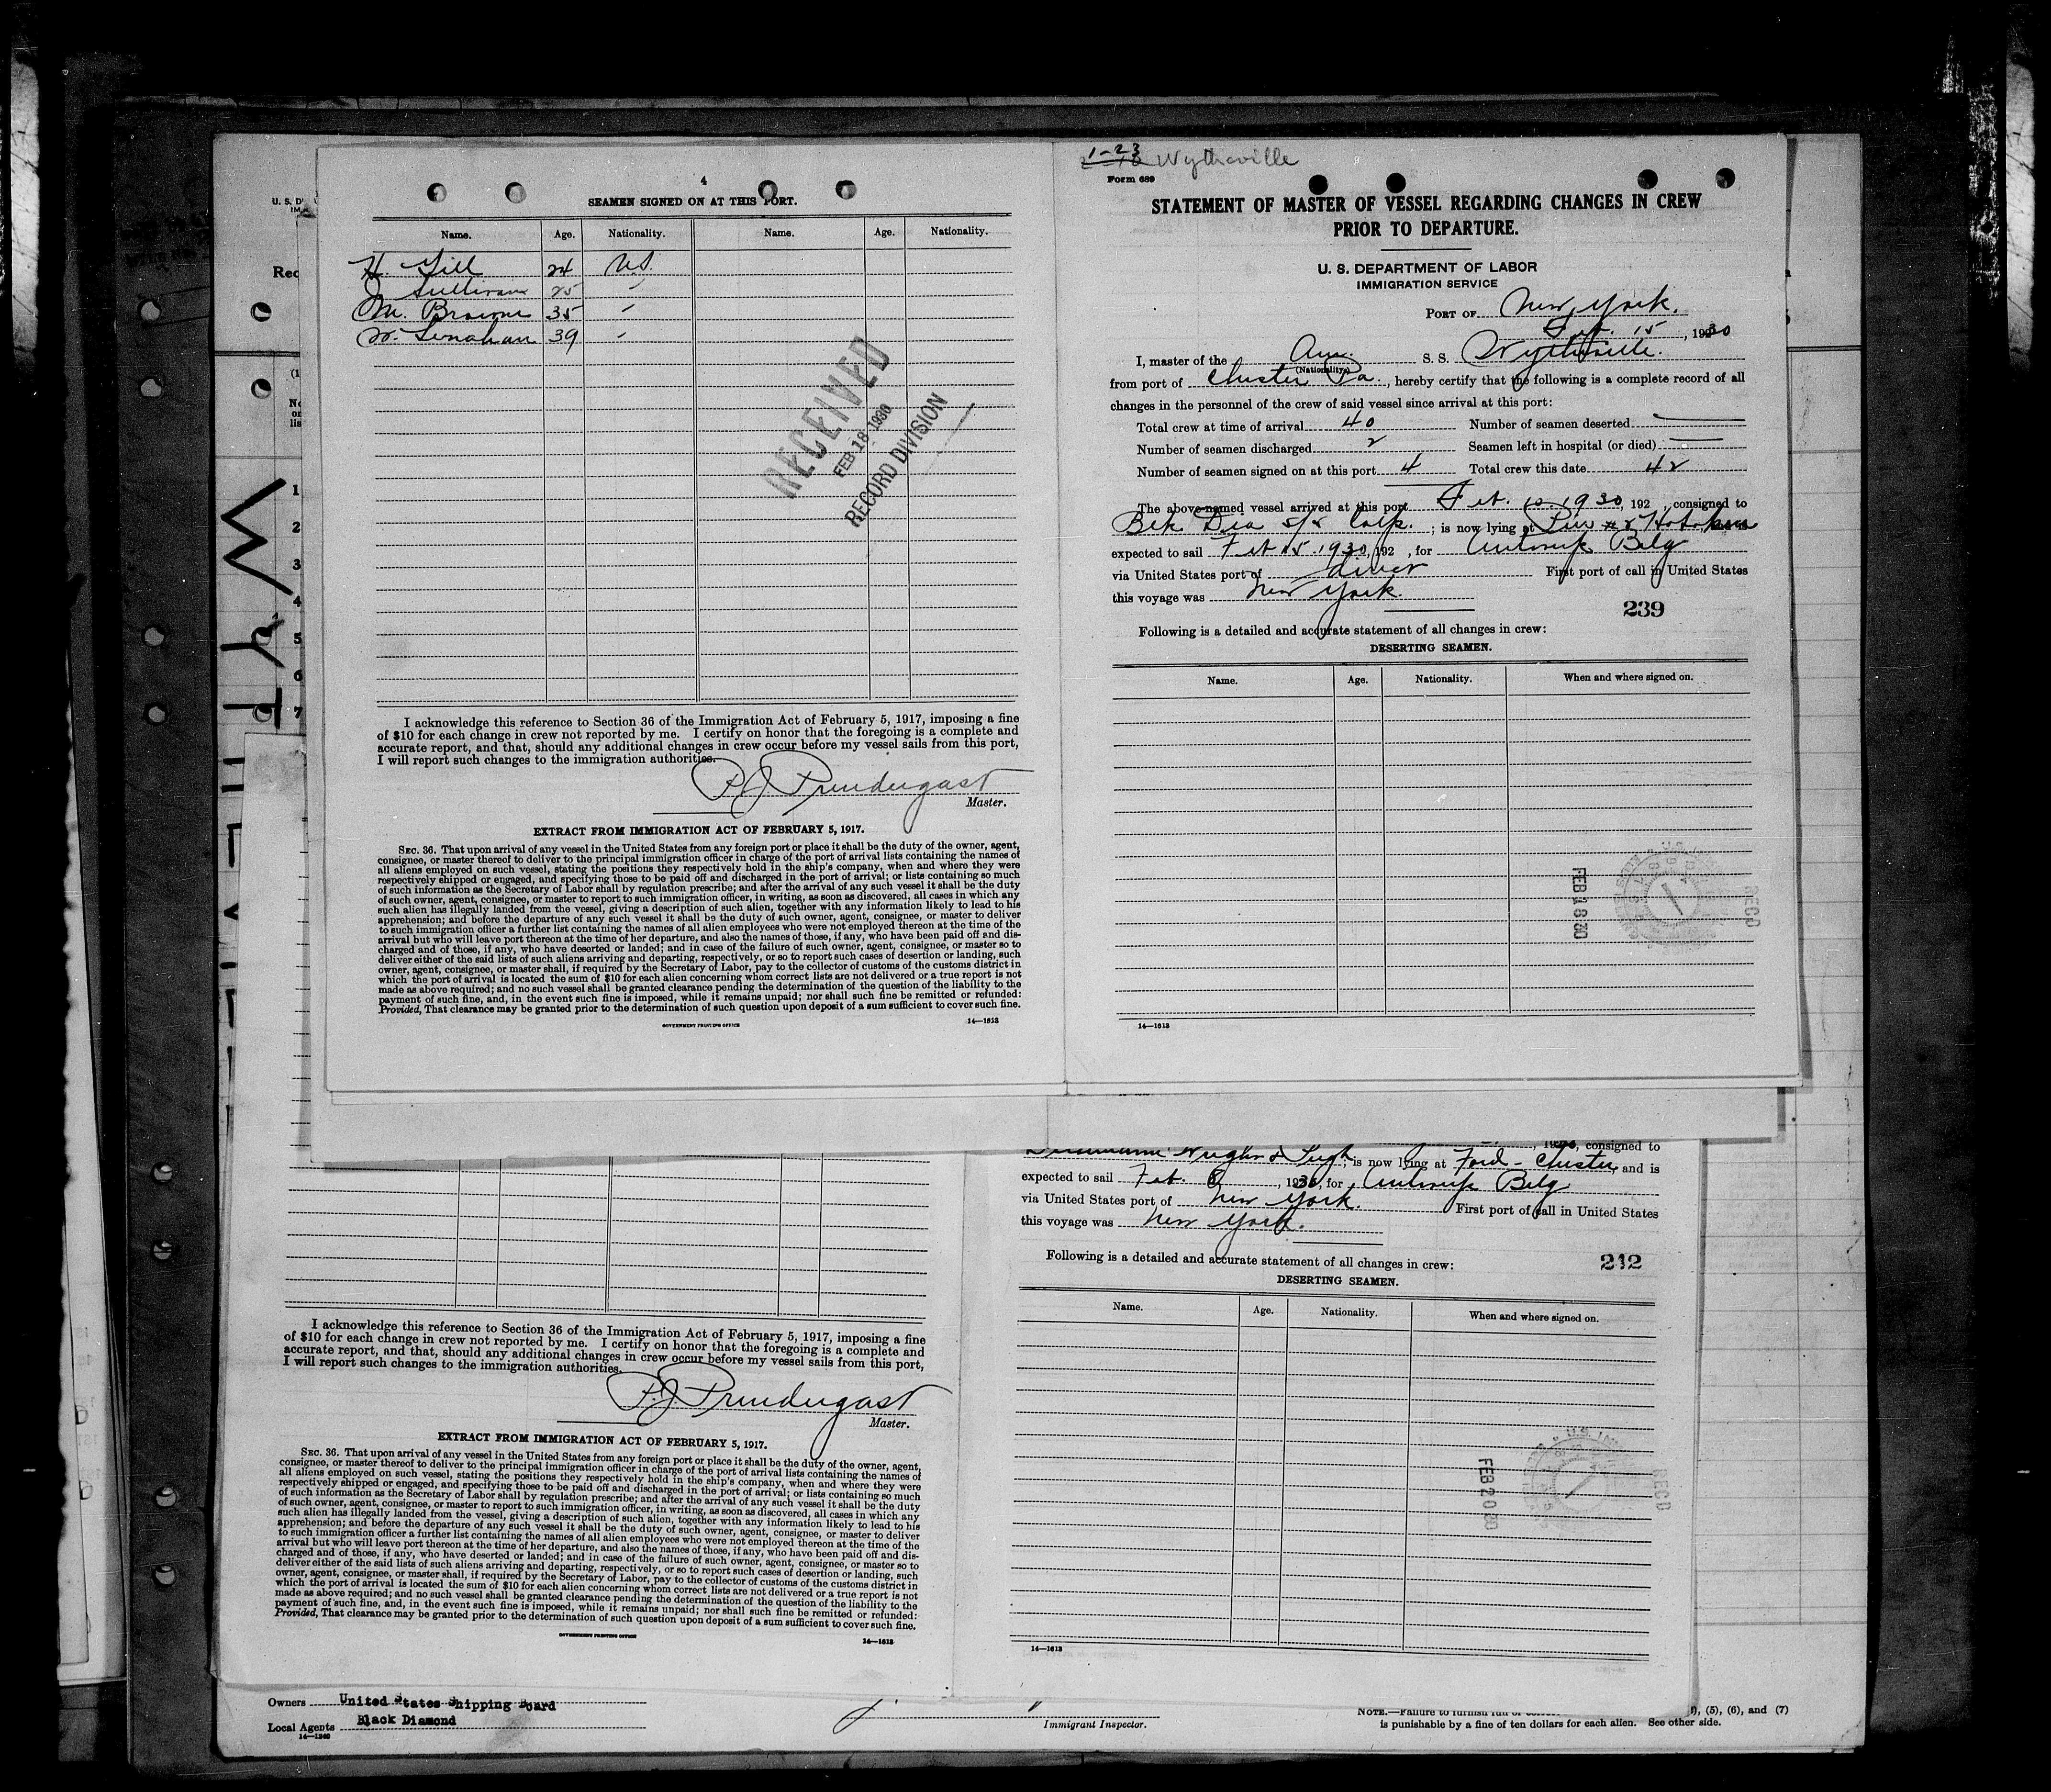 4
SEAMEN SIGNED ON AT THIS PORT.
Name. Age. Nationality. Name. Age. Nationality.
H. Gill 24 U.S.
J. Sullivan 25 "
M. Browne 35 "
W. Lenahan 39 "
RECEIVED
FEB 18 1930
RECORD DIVISION
I acknowledge this reference to Section 36 of the Immigration Act of February 5, 1917, imposing a fine
of $10 for each change in crew not reported by me. I certify on honor that the foregoing is a complete and
accurate report, and that, should any additional changes in crew occur before my vessel sails from this port,
I will report such changes to the immigration authorities.
P J Prendergast
Master.
EXTRACT FROM IMMIGRATION ACT OF FEBRUARY 5, 1917.
SEC. 36. That upon arrival of any vessel in the United States from any foreign port or place it shall be the duty of the owner, agent,
consignee, or master thereof to deliver to the principal immigration officer in charge of the port of arrival lists containing the names of
all aliens employed on such vessel, stating the positions they respectively hold in the ship's company, when and where they were
respectively shipped or engaged, and specifying those to be paid off and discharged in the port of arrival; or lists containing so much
of such information as the Secretary of Labor shall by regulation prescribe; and after the arrival of any such vessel it shall be the duty
of such owner, agent, consignee, or master to report to such immigration officer, in writing, as soon as discovered, all cases in which any
such alien has illegally landed from the vessel, giving a description of such alien, together with any information likely to lead to his
apprehension; and before the departure of any such vessel it shall be the duty of such owner, agent, consignee, or master to deliver
to such immigration officer a further list containing the names of all alien employees who were not employed thereon at the time of the
arrival but who will leave port thereon at the time of her departure, and also the names of those, if any, who have been paid off and dis-
charged and of those, if any, who have deserted or landed; and in case of the failure of such owner, agent, consignee, or master so to
deliver either of the said lists of such aliens arriving and departing, respectively, or so to report such cases of desertion or landing, such
owner, agent, consignee, or master shall, if required by the Secretary of Labor, pay to the collector of customs of the customs district in
which the port of arrival is located the sum of $10 for each alien concerning whom correct lists are not delivered or a true report is not
made as above required; and no such vessel shall be granted clearance pending the determination of the question of the liability to the
payment of such fine, and, in the event such fine is imposed, while it remains unpaid; nor shall such fine be remitted or refunded:
Provided, That clearance may be granted prior to the determination of such question upon deposit of a sum sufficient to cover such fine.
GOVERNMENT PRINTING OFFICE 14—1613
1-23 Wytheville
Form 689
STATEMENT OF MASTER OF VESSEL REGARDING CHANGES IN CREW
PRIOR TO DEPARTURE.
U. S. DEPARTMENT OF LABOR
IMMIGRATION SERVICE
PORT OF New York.
Feb. 15, 1930
I, master of the Am. S. S. Wytheville.
(Nationality)
from port of Chester Pa., hereby certify that the following is a complete record of all
changes in the personnel of the crew of said vessel since arrival at this port:
Total crew at time of arrival 40 Number of seamen deserted
Number of seamen discharged 2 Seamen left in hospital (or died)
Number of seamen signed on at this port 4 Total crew this date 42
The above-named vessel arrived at this port Feb. 10 1930, 192 , consigned to
Blk Dia S/S Corp. ; is now lying at Pier # 2 Hoboken
expected to sail Feb 15 1930, 192 , for Antwerp Belg
via United States port of direct First port of call in United States
this voyage was New York.
239
Following is a detailed and accurate statement of all changes in crew:
DESERTING SEAMEN.
Name. Age. Nationality. When and where signed on.
FEB 18 30
REC'D
14—1613
U. S. D
Rec
1
2
3
4
5
6
7
WYT
I acknowledge this reference to Section 36 of the Immigration Act of February 5, 1917, imposing a fine
of $10 for each change in crew not reported by me. I certify on honor that the foregoing is a complete and
accurate report, and that, should any additional changes in crew occur before my vessel sails from this port,
I will report such changes to the immigration authorities.
P.J. Prendergast
Master.
EXTRACT FROM IMMIGRATION ACT OF FEBRUARY 5, 1917.
SEC. 36. That upon arrival of any vessel in the United States from any foreign port or place it shall be the duty of the owner, agent,
consignee, or master thereof to deliver to the principal immigration officer in charge of the port of arrival lists containing the names of
all aliens employed on such vessel, stating the positions they respectively hold in the ship's company, when and where they were
respectively shipped or engaged, and specifying those to be paid off and discharged in the port of arrival; or lists containing so much
of such information as the Secretary of Labor shall by regulation prescribe; and after the arrival of any such vessel it shall be the duty
of such owner, agent, consignee, or master to report to such immigration officer, in writing, as soon as discovered, all cases in which any
such alien has illegally landed from the vessel, giving a description of such alien, together with any information likely to lead to his
apprehension; and before the departure of any such vessel it shall be the duty of such owner, agent, consignee, or master to deliver
to such immigration officer a further list containing the names of all alien employees who were not employed thereon at the time of the
arrival but who will leave port thereon at the time of her departure, and also the names of those, if any, who have been paid off and dis-
charged and of those, if any, who have deserted or landed; and in case of the failure of such owner, agent, consignee, or master so to
deliver either of the said lists of such aliens arriving and departing, respectively, or so to report such cases of desertion or landing, such
owner, agent, consignee, or master shall, if required by the Secretary of Labor, pay to the collector of customs of the customs district in
which the port of arrival is located the sum of $10 for each alien concerning whom correct lists are not delivered or a true report is not
made as above required; and no such vessel shall be granted clearance pending the determination of the question of the liability to the
payment of such fine, and, in the event such fine is imposed, while it remains unpaid; nor shall such fine be remitted or refunded:
Provided, That clearance may be granted prior to the determination of such question upon deposit of a sum sufficient to cover such fine.
GOVERNMENT PRINTING OFFICE 14—1613
, consigned to
; is now lying at Ford - Chester, and is
expected to sail Feb. 8, 1930, for Antwerp Belg
via United States port of New York. First port of call in United States
this voyage was New York.
Following is a detailed and accurate statement of all changes in crew:
212
DESERTING SEAMEN.
Name. Age. Nationality. When and where signed on.
FEB 20 30
REC'D
14—1613
Owners United States Shipping Board
Local Agents Black Diamond
14—1240
Immigrant Inspector.
NOTE.—Failure to furnish full or correct ), (5), (6), and (7)
is punishable by a fine of ten dollars for each alien. See other side.